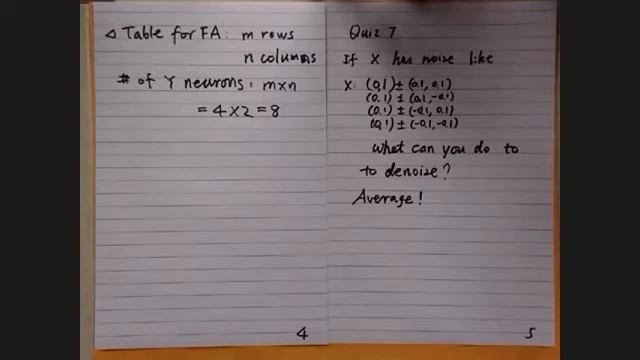 △ Table for FA: m rows
n columns
# of Y neurons: m×n
= 4×2=8
4
Quiz 7
If X has noise like
X: (0,1)±(0.1, 0.1)
(0,1)±(0.1,-0.1)
(0,1)±(-0.1, 0.1)
(0,1)±(-0.1,-0.1)
What can you do to
to denoise?
Average!
5